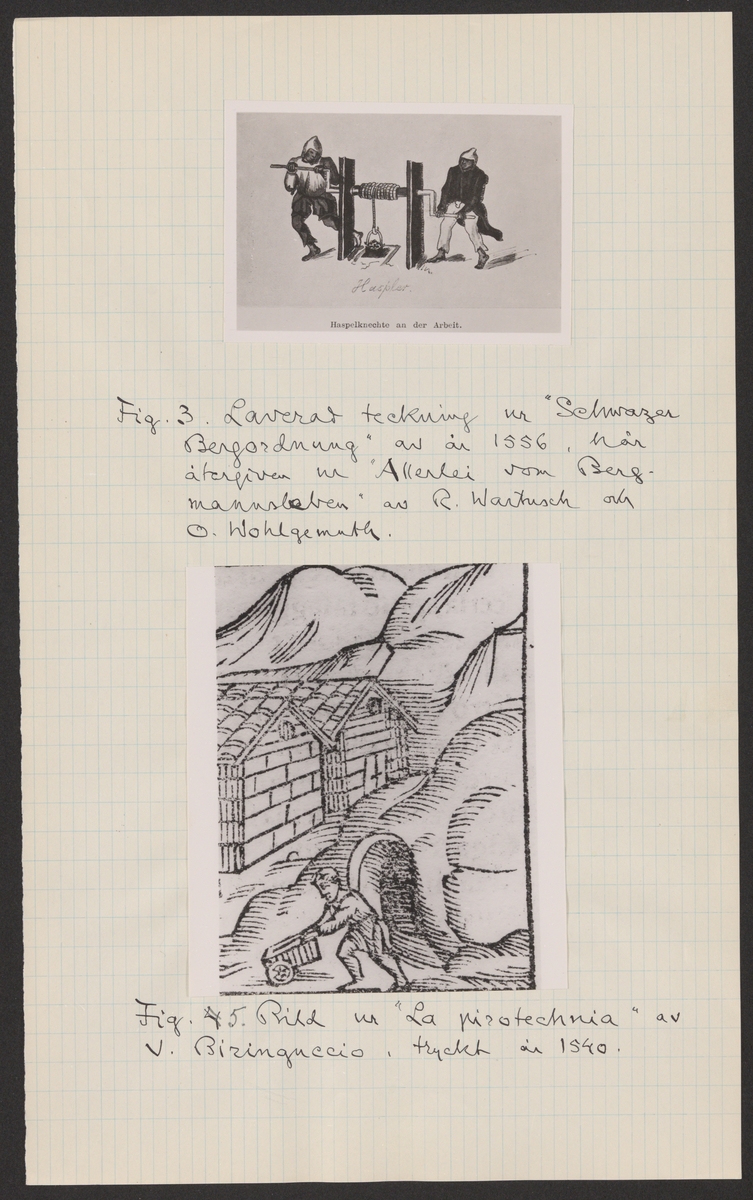 Haspler.
Haspelknechte an der Arbeit.
Fig. 3. Laverad teckning ur "Schwazer
Bergordnung" av år 1556, här
återgiven ur "Allerlei vom Berg-
mannsleben" av R. Wartusch och
O. Wohlgemuth.
Fig. 5. Bild ur "La pirotechnia" av
V. Biringuccio, tryckt år 1540.